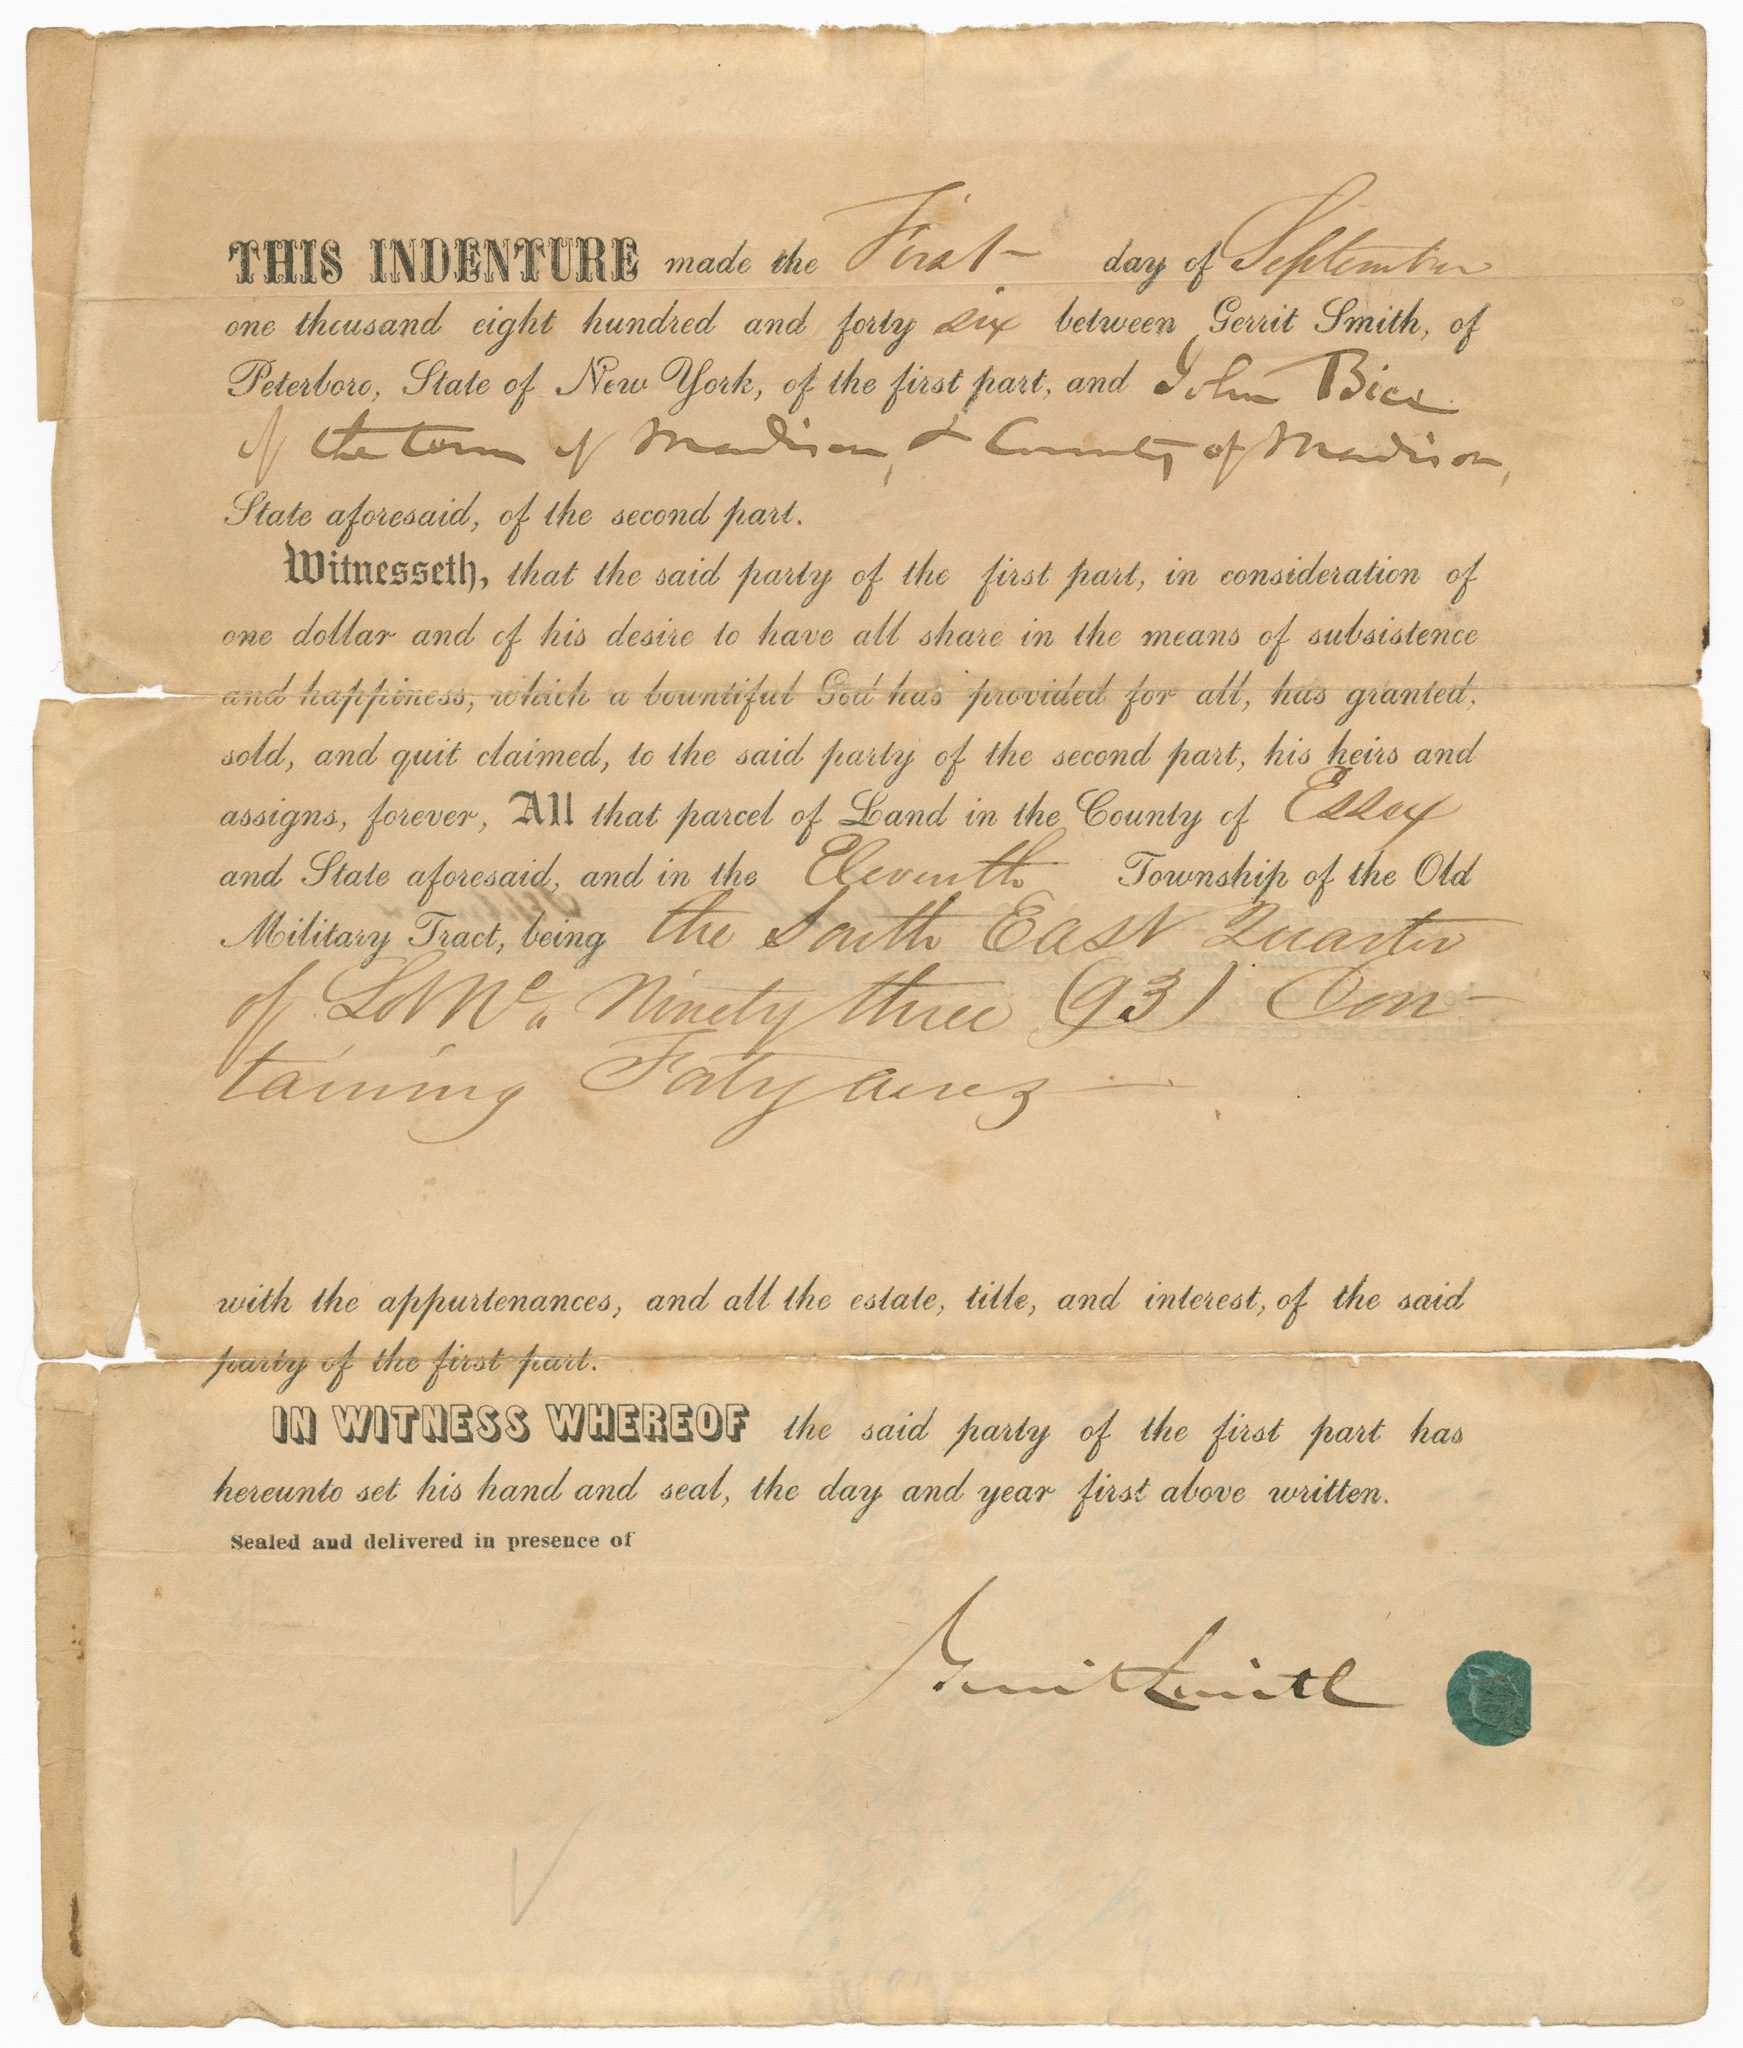 THIS INDENTURE made the First day of September
one thousand eight hundred and forty six between Gerrit Smith, of
Peterboro, State of New York, of the first part, and John Bice
of the town of Madison, & County of Madison,
State aforesaid, of the second part.
Witnesseth, that the said party of the first part, in consideration of
one dollar and of his desire to have all share in the means of subsistence
and happiness, which a bountiful God has provided for all, has granted,
sold, and quit claimed, to the said party of the second part, his heirs and
assigns, forever, All that parcel of Land in the County of Essex
and State aforesaid, and in the Eleventh Township of the Old
Military Tract, being the South East Quarter
of Lot No. Ninety three (93) Con-
taining Forty acres
with the appurtenances, and all the estate, title, and interest, of the said
party of the first part.
IN WITNESS WHEREOF the said party of the first part has
hereunto set his hand and seal, the day and year first above written.
Sealed and delivered in presence of
Gerrit Smith